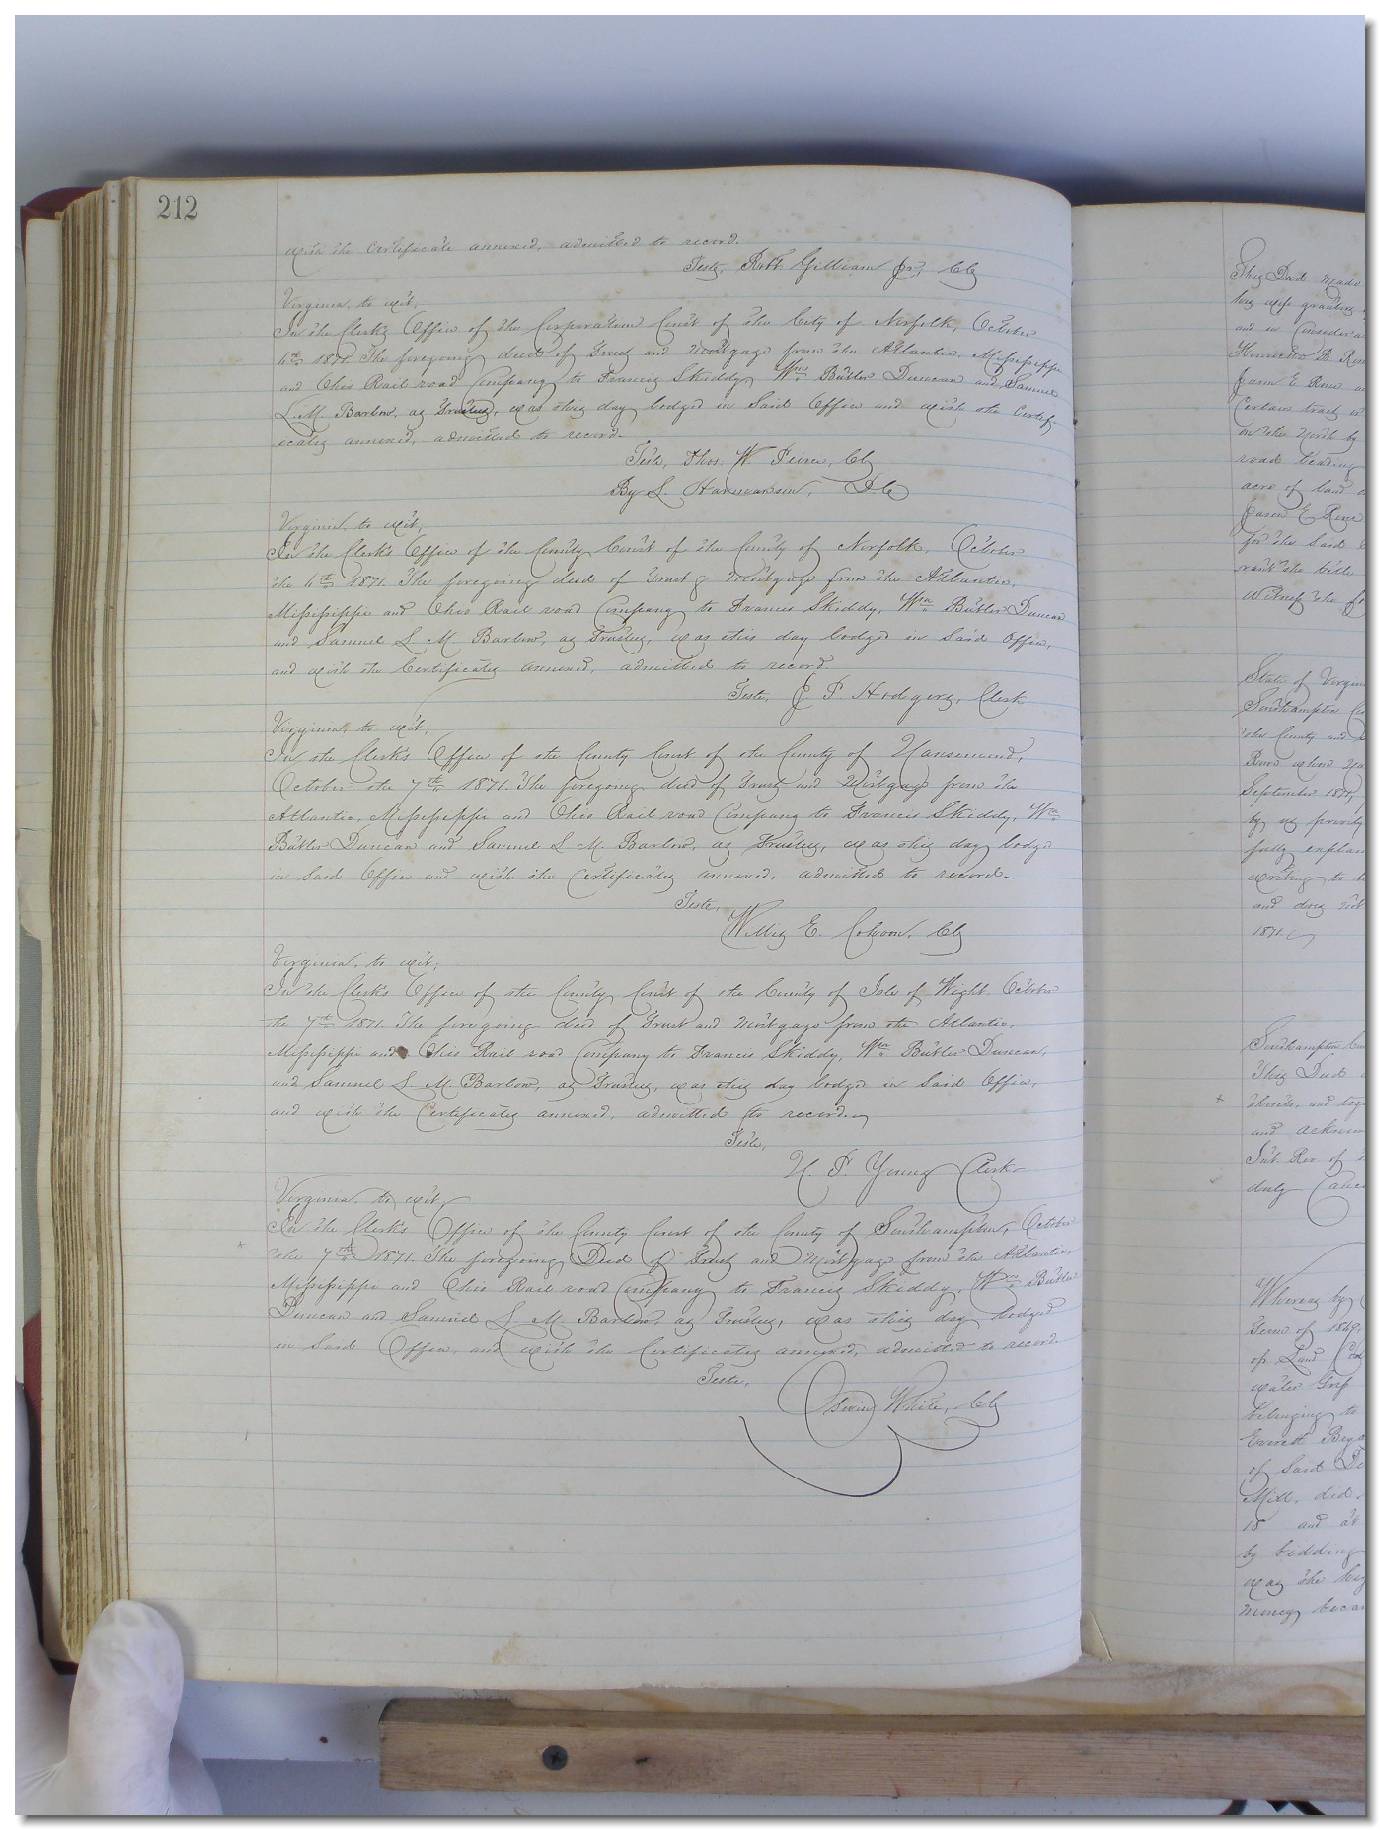 212
with the Certificate annexed, admitted to record.
Teste, Robt Gilliam Jr, Clk
Virginia, to wit,
In the Clerks Office of the Corporation Court of the City of Norfolk, October
6th 1871. The foregoing deed of Trust and Mortgage from the Atlantic, Mississippi
and Ohio Rail road Company to Francis Skiddy, Wm Butler Duncan and Samuel
L. M. Barlow, as Trustees, was this day lodged in Said Office and with the Certif-
icates annexed, admitted to record.
Teste, Thos. W. Peirce, Clk
By L. Harmanson, D.C.
Virginia, to wit,
In the Clerk's Office of the County Court of the County of Norfolk, October
the 6th 1871. The foregoing deed of Trust & Mortgage from the Atlantic,
Mississippi and Ohio Rail road Company to Francis Skiddy, Wm Butler Duncan
and Samuel L. M. Barlow, as Trustees, was this day lodged in Said Office,
and with the Certificates annexed, admitted to record.
Teste, J. F. Hodges, Clerk
Virginia, to wit,
In the Clerk's Office of the County Court of the County of Nansemond,
October the 7th 1871. The foregoing deed of Trust and Mortgage from the
Atlantic, Mississippi and Ohio Rail road Company to Francis Skiddy, Wm
Butler Duncan and Samuel L. M. Barlow, as Trustees, was this day lodged
in Said Office and with the Certificates annexed, admitted to record.
Teste,
Willis E. Cohoon, Clk
Virginia, to wit;
In the Clerk's Office of the County Court of the County of Isle of Wight. October
the 7th 1871. The foregoing deed of Trust and Mortgage from the Atlantic,
Mississippi and Ohio Rail road Company to Francis Skiddy, Wm Butler Duncan,
and Samuel L. M. Barlow, as Trustees, was this day lodged in Said Office,
and with the Certificates annexed, admitted to record.
Teste,
N. P. Young Clerk
Virginia, to wit,
In the Clerk's Office of the County Court of the County of Southampton, October
the 7th 1871. The foregoing Deed of Trust and Mortgage from the Atlantic,
Mississippi and Ohio Rail road Company to Francis Skiddy, Wm Butler
Duncan and Samuel L. M. Barlow, as Trustees, was this day lodged
in Said Office, and with the Certificates annexed, admitted to record.
Teste,
White, Clk
This Deed made
his wife granting
and in Consider
Jason E Rose
Certain tract
on the North by
road leading
acre of land
Jason E Rose
for the Said
rant the title
Witness the
State of Virgin
Southampton
the County and
September 1871,
by us privily
fully explain
writing to
and does not
1871.
Southampton
This Deed
and acknow
Int. Rev of
duly Cance
Whereas by
Term of 1869,
of Land
belonging to
of Said
Mill, did
18 and at
by bidding
was the hig
Money beca